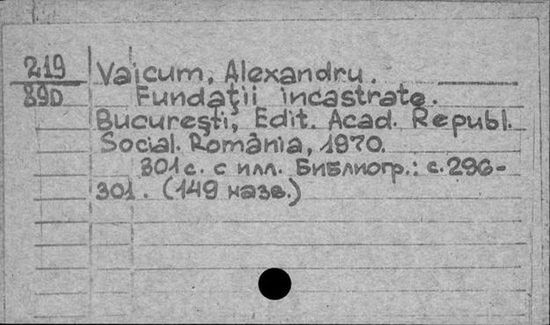 219
89D
Vaicum, Alexandru.
Fundaţii incastrate.
Bucureşti, Edit. Acad. Republ.
Social. România, 1970.
301 с. с илл. Библиогр.: с. 296-
301. (149 назв.)